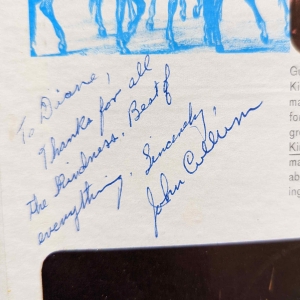 To Diane,
Thanks for all
the kindness. Best of
everything. Sincerely,
John Cullum
G
Ki
ma
fo
gr
Ki
ma
ab
ing